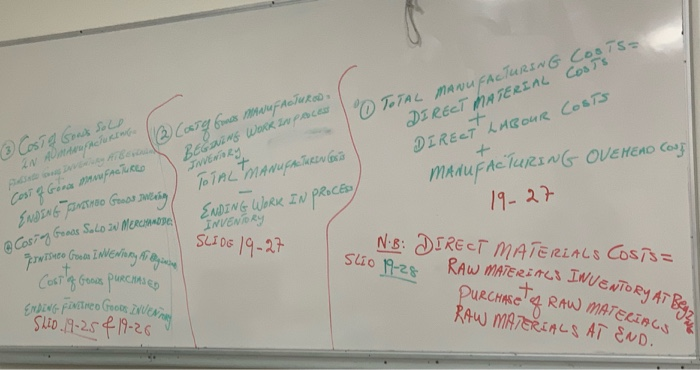 ① TOTAL MANUFACTURING COSTS =
DIRECT MATERIAL COSTS
+
DIRECT LABOUR COSTS
+
MANUFACTURING OVEHEAD Cost
19-27
N.B: DIRECT MATERIALS COSTS =
SLID 19-28
RAW MATERIALS INVENTORY AT
+
PURCHASE of RAW MATERIALS
RAW MATERIALS AT END.
② Cost of Goods MANUFACTURED.
BEGINING WORK IN PROCESS
INVENTORY
+
TOTAL MANUFACTURING Costs
-
ENDING WORK IN PROCESS
INVENTORY
SLIDE 19-27
③ Cost of Goods SOLD
IN A MANUFACTURING.
Cost of Goods MANUFACTURED
-
ENDING FINISHED Goods INVENTORY
Cost of Goods SOLD IN
FINISHED Goods INVENTORY At
+
Cost of Goods PURCHASED
ENDING FINISHED Goods INVENTORY
SLID. 19-25 & 19-26